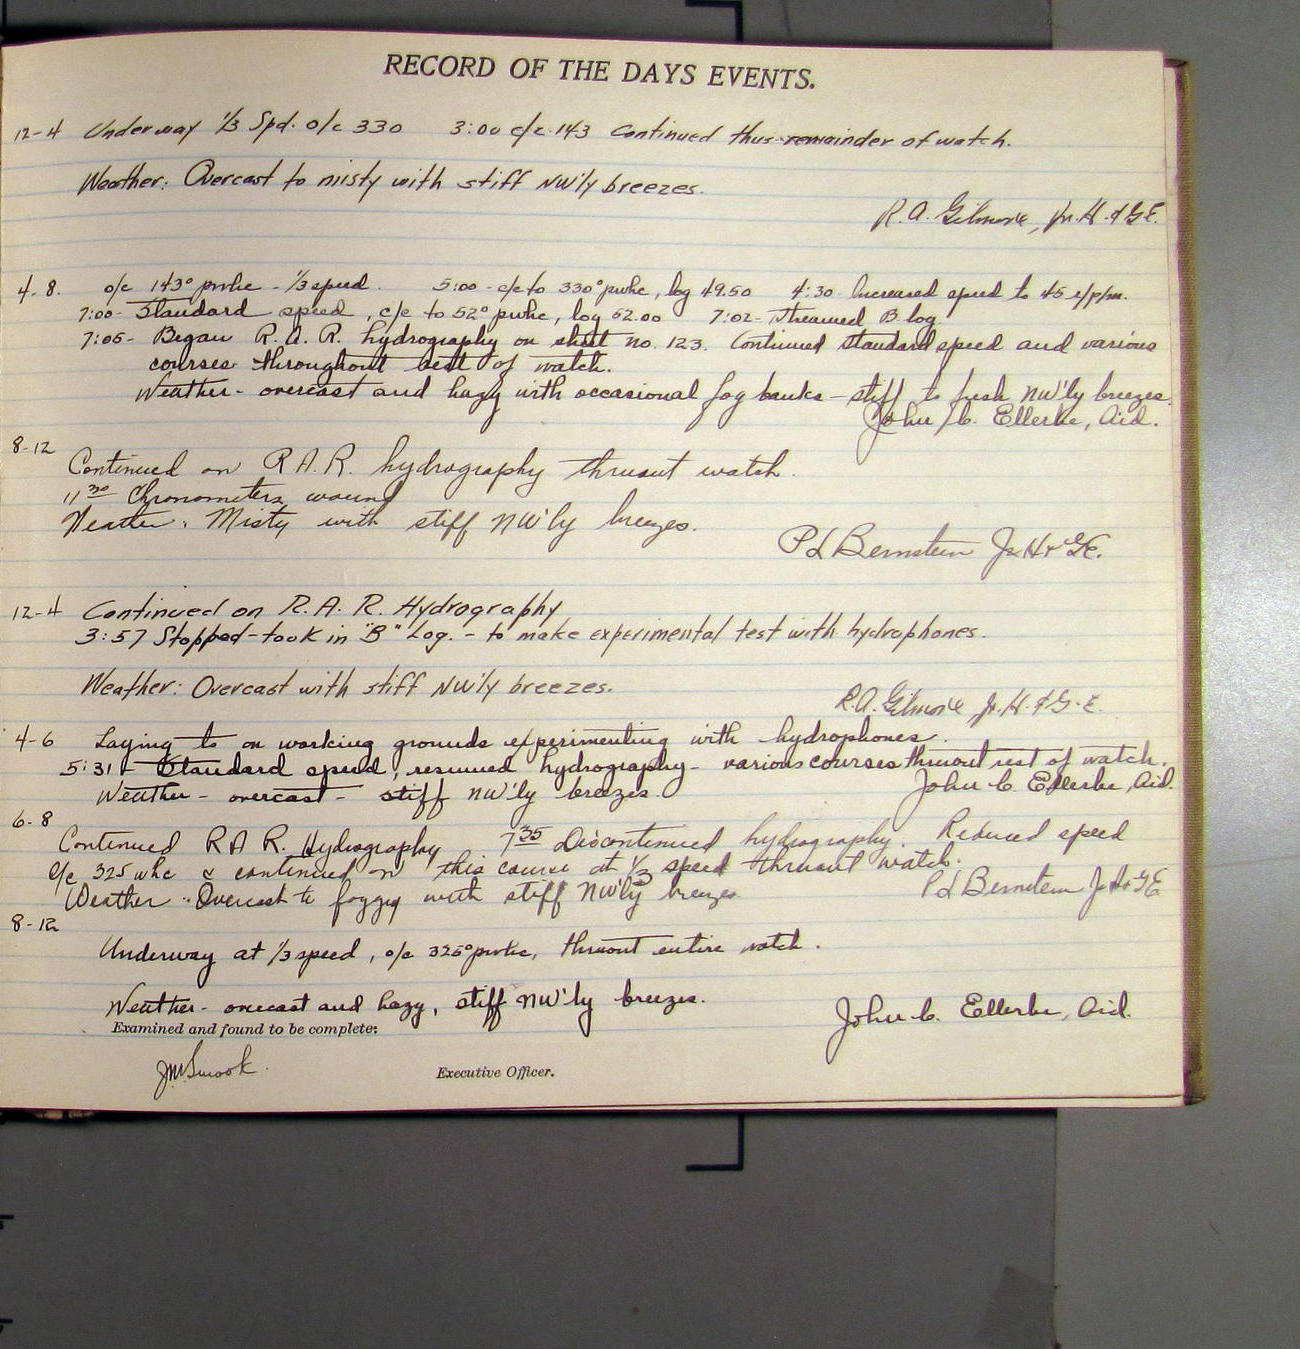 RECORD OF THE DAYS EVENTS.
12-4 Underway 1/3 Spd. o/c 330 3:00 c/c 143 Continued thus remainder of watch.
Weather: Overcast to misty with stiff NW'ly breezes.
R.A. Gilmore, Jr. H. & G.E.
4-8. o/c 143° pwhc - 1/3 speed. 5:00 - c/c to 330° pwhc, log 49.50 4:30 Increased speed to 45 r/p/m.
7:00- Standard speed, c/c to 52° pwhc, log 62.00 7:02- Streamed B log.
7:05- Began R.A.R. hydrography on sheet no. 123. Continued standard speed and various
courses throughout rest of watch.
Weather - overcast and hazy with occasional fog banks - stiff to fresh NW'ly breezes.
John C. Ellerbe, Aid.
8-12
Continued on R.A.R. hydrography thruout watch
11 30 Chronometers wound
Weather: Misty with stiff NW'ly breezes.
P L Bernstein Jr H & GE.
12-4 Continued on R.A.R. Hydrography
3:57 Stopped - took in "B" Log. - to make experimental test with hydrophones.
Weather: Overcast with stiff NW'ly breezes.
R.A. Gilmore Jr. H. & G. E.
4-6 Laying to on working grounds experimenting with hydrophones.
5:31 - Standard speed, resumed hydrography - various courses thruout rest of watch.
Weather - overcast - stiff NW'ly breezes.
John C. Ellerbe, Aid.
6-8
Continued R A R. Hydrography 7 35 Discontinued hydrography. Reduced speed
c/c 325 whc & continued on this course at 1/3 speed thruout watch.
Weather: Overcast to foggy with stiff NW'ly breezes.
P L Bernstein Jr H & GE
8-12
Underway at 1/3 speed, o/c 325° pwhc, thruout entire watch.
Weather - overcast and hazy, stiff NW'ly breezes.
John C. Ellerbe, Aid.
Examined and found to be complete:
J M Smook.
Executive Officer.